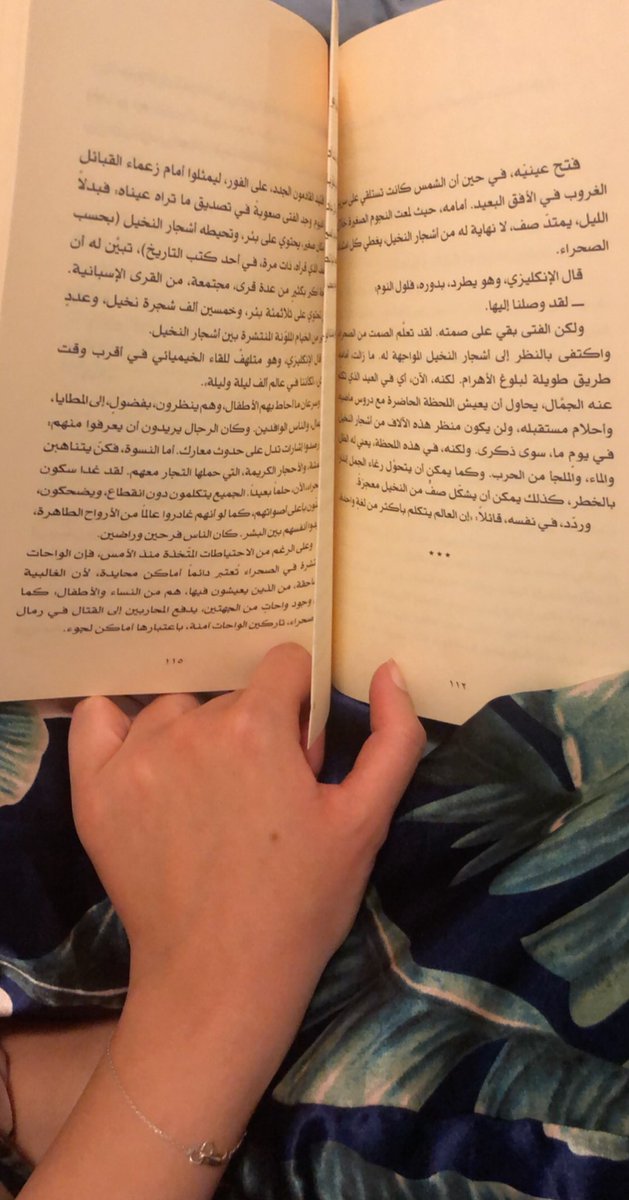 فتح عينيْه، في حين أن الشمس كانت تستلقي على
الغروب في الأفق البعيد. أمامه، حيث لمعت النجوم الصغيرة
الليل، يمتدّ صف، لا نهاية له من أشجار النخيل، يغطي كل
الصحراء.
قال الإنكليزي، وهو يطرد، بدوره، فلول النوم:
— لقد وصلنا إليها.
ولكن الفتى بقي على صمته. لقد تعلّم الصمت من
واكتفى بالنظر إلى أشجار النخيل المواجهة له. ما زالت أمامه
طريق طويلة لبلوغ الأهرام. لكنه، الآن، أي في العبد الذي
عنه الجمّال، يحاول أن يعيش اللحظة الحاضرة مع دروس
وأحلام مستقبله، ولن يكون منظر هذه الآلاف من أشجار النخيل
في يوم ما، سوى ذكرى. ولكنه، في هذه اللحظة، يعني له
والماء، والملجأ من الحرب. وكما يمكن أن يتحوّل رغاء الجمل
بالخطر، كذلك يمكن أن يشكّل صفٌّ من النخيل معجزة.
وردّد، في نفسه، قائلاً: «إن العالم يتكلم بأكثر من لغة
***
١١٢
القادمون الجدد، على الفور، ليمثلوا أمام زعماء القبائل
وجد الفتى صعوبة في تصديق ما تراه عيناه: فبدلاً
صغير، يحتوي على بئر، وتحيطه أشجار النخيل (بحسب
قرأه، ذات مرة، في أحد كتب التاريخ)، تبيَّن له أن
بكثير من عدة قرى، مجتمعة، من القرى الإسبانية.
على ثلاثمئة بئر، وخمسين ألف شجرة نخيل، وعددٍ
من الخيام الملوّنة المنتشرة بين أشجار النخيل.
الإنكليزي، وهو متلهف للقاء الخيميائي في أقرب وقت
كأننا في عالم ألف ليلة وليلة».
ما أحاط بهم الأطفال، وهم ينظرون، بفضول، إلى المطايا،
والناس الوافدين. وكان الرجال يريدون أن يعرفوا منهم:
إشارات تدل على حدوث معارك. أما النسوة، فكنّ يتناهبن
والأحجار الكريمة، التي حملها التجار معهم. لقد غدا سكون
الآن، حلماً بعيداً. الجميع يتكلمون دون انقطاع، ويضحكون،
بأعلى أصواتهم، كما لو أنهم غادروا عالماً من الأرواح الطاهرة،
أنفسهم بين البشر. كان الناس فرحين وراضين.
وعلى الرغم من الاحتياطات المتّخذة منذ الأمس، فإن الواحات
في الصحراء تُعتبر دائماً أماكن محايدة، لأن الغالبية
من الذين يعيشون فيها، هم من النساء والأطفال، كما
وجود واحات من الجهتين، يدفع المحاربين إلى القتال في رمال
صحراء، تاركين الواحات آمنة، باعتبارها أماكن لجوء.
١١٥